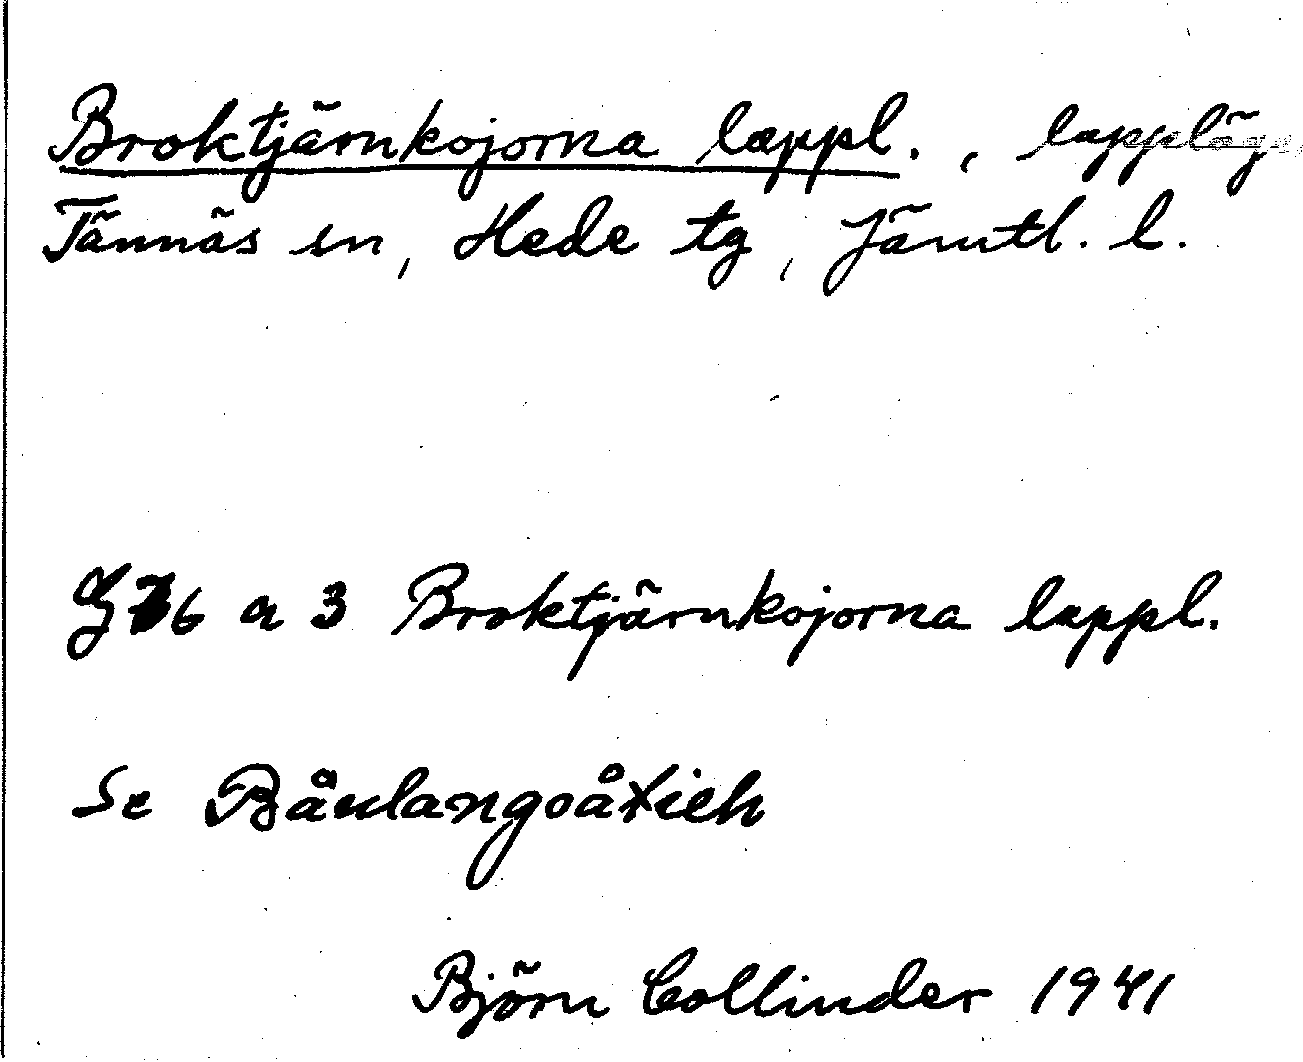 Broktjärnkojorna lappl., lappläge,
Tännäs sn, Hede tg, Jämtl. l.
G 76 a 3 Broktjärnkojorna lappl.
Se Båulangoåtieh
Björn Collinder 1941